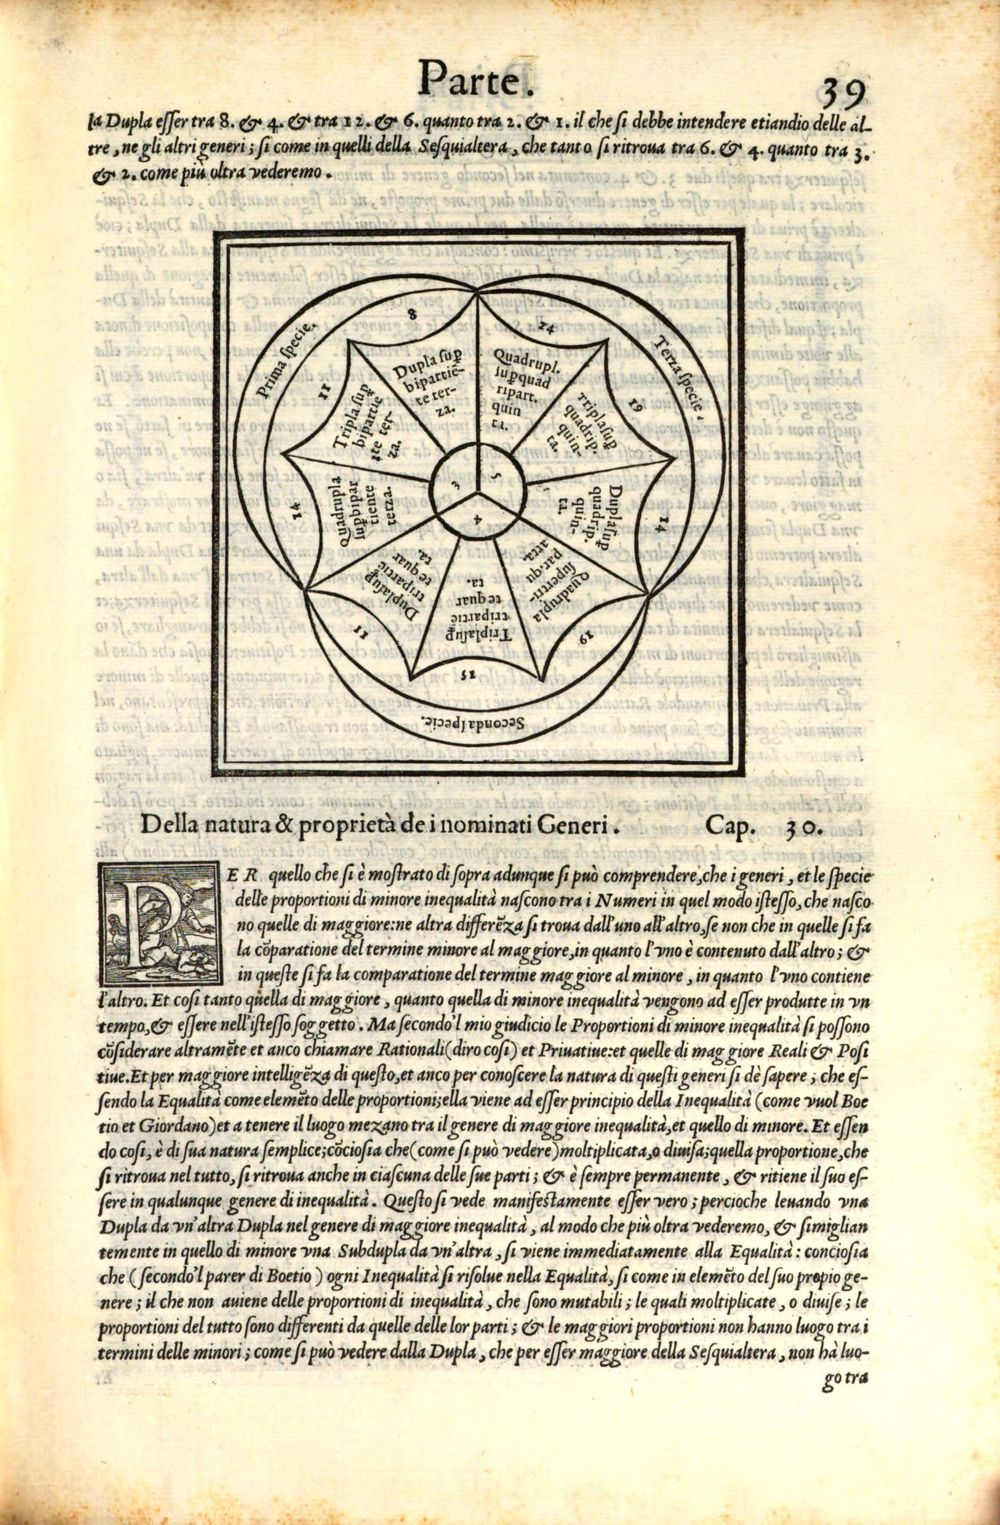 Parte. 39
la Dupla eſſer tra 8. & 4. & tra 12. & 6. quanto tra 2. & 1. il che ſi debbe intendere etiandio delle al-
tre, ne gli altri generi; ſi come in quelli della Seſquialtera, che tanto ſi ritroua tra 6. & 4. quanto tra 3.
& 2. come più oltra vederemo.
Prima ſpecie.
Terza ſpecie.
Seconda ſpecie.
8
Dupla ſup̱
bipartiẽ-
te ter-
za.
11
Tripla ſup̱
bipartiẽ
te ter-
za.
14
Quadrupla
ſup̱bipar
tiente
terza.
3
24
Quadrupl.
ſup̱quad
ripart.
quin
ta.
19
Tripla ſup̱
quadrip.
quin-
ta.
14
Dupla ſup̱
quadrip.
quin-
ta.
5
19
Quadrupla
ſupertri-
par. qu
arta.
15
Tripla ſup̱
tripartiẽ
te quar
ta.
11
Dupla ſup̱
tripartiẽ
te quar
ta.
4
Della natura & proprietà de i nominati Generi. Cap. 30.
PER quello che ſi è moſtrato di ſopra adunque ſi può comprendere, che i generi, et le ſpecie
delle proportioni di minore inequalità naſcono tra i Numeri in quel modo iſteſſo, che naſco
no quelle di maggiore: ne altra differẽza ſi troua dall'uno all'altro, ſe non che in quelle ſi fa
la cõparatione del termine minore al maggiore, in quanto l'vno è contenuto dall'altro; &
in queſte ſi fa la comparatione del termine maggiore al minore, in quanto l'vno contiene
l'altro. Et coſi tanto quella di maggiore, quanto quella di minore inequalità vengono ad eſſer produtte in vn
tempo, & eſſere nell'iſteſſo ſoggetto. Ma ſecondo'l mio giudicio le Proportioni di minore inequalità ſi poſſono
cõſiderare altramẽte et anco chiamare Rationali (diro coſi) et Priuatiue: et quelle di maggiore Reali & Poſi
tiue. Et per maggiore intelligẽza di queſto, et anco per conoſcere la natura di queſti generi ſi dè ſapere; che eſ-
ſendo la Equalità come elemẽto delle proportioni; ella viene ad eſſer principio della Inequalità (come vuol Boe
tio et Giordano) et a tenere il luogo mezano tra il genere di maggiore inequalità, et quello di minore. Et eſſen
do coſi, è di ſua natura ſemplice; cõcioſia che (come ſi può vedere) moltiplicata, o diuiſa; quella proportione, che
ſi ritroua nel tutto, ſi ritroua anche in ciaſcuna delle ſue parti; & è ſempre permanente, & ritiene il ſuo eſ-
ſere in qualunque genere di inequalità. Queſto ſi vede manifeſtamente eſſer vero; percioche leuando vna
Dupla da vn'altra Dupla nel genere di maggiore inequalità, al modo che più oltra vederemo, & ſimiglian
temente in quello di minore vna Subdupla da vn'altra, ſi viene immediatamente alla Equalità: concioſia
che (ſecondo'l parer di Boetio) ogni Inequalità ſi riſolue nella Equalità, ſi come in elemẽto del ſuo propio ge-
nere; il che non auiene delle proportioni di inequalità, che ſono mutabili; le quali moltiplicate, o diuiſe; le
proportioni del tutto ſono differenti da quelle delle lor parti; & le maggiori proportioni non hanno luogo tra i
termini delle minori; come ſi può vedere dalla Dupla, che per eſſer maggiore della Seſquialtera, non hà luo-
go tra